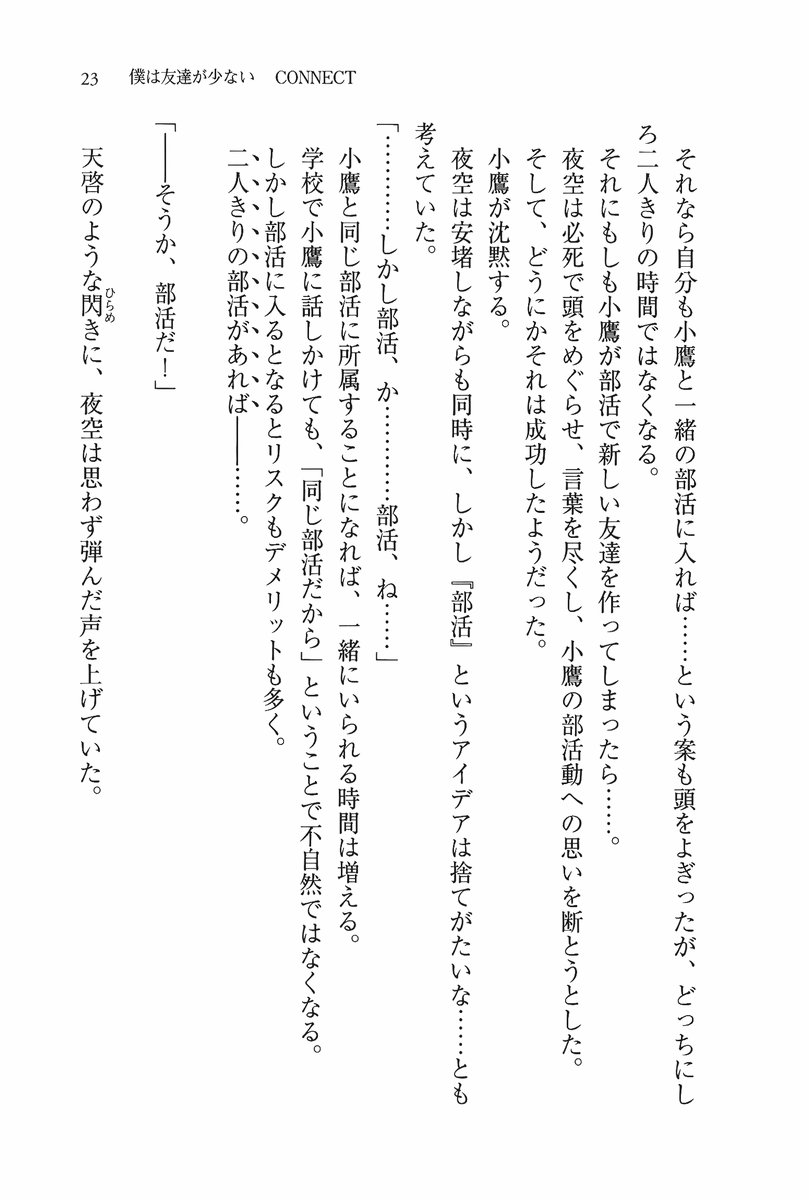 23　僕は友達が少ない　CONNECT
　それなら自分も小鷹と一緒の部活に入れば……という案も頭をよぎったが、どっちにし
ろ二人きりの時間ではなくなる。
　それにもしも小鷹が部活で新しい友達を作ってしまったら……。
　夜空は必死で頭をめぐらせ、言葉を尽くし、小鷹の部活動への思いを断とうとした。
　そして、どうにかそれは成功したようだった。
　小鷹が沈黙する。
　夜空は安堵しながらも同時に、しかし『部活』というアイデアは捨てがたいな……とも
考えていた。
「…………しかし部活、か…………部活、ね……」
　小鷹と同じ部活に所属することになれば、一緒にいられる時間は増える。
　学校で小鷹に話しかけても、「同じ部活だから」ということで不自然ではなくなる。
　しかし部活に入るとなるとリスクもデメリットも多く。
　二人きりの部活があれば――……。
「――そうか、部活だ！」
　天啓のような閃きに、夜空は思わず弾んだ声を上げていた。
ひらめ